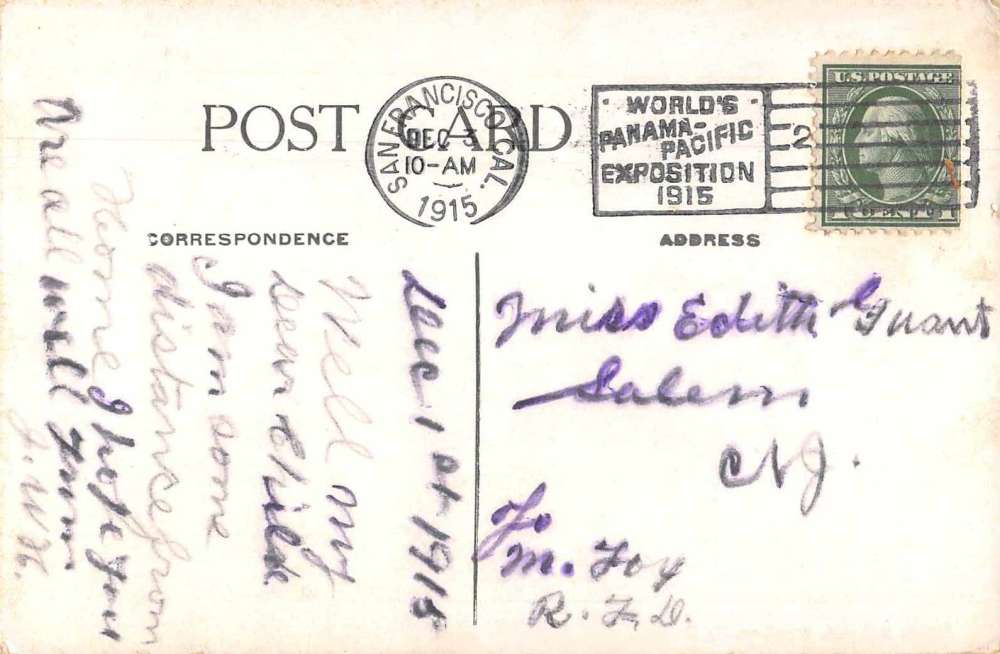 POST CARD
SAN FRANCISCO, CAL.
DEC 3
10-AM
1915
WORLD'S
PANAMA-
PACIFIC
EXPOSITION
1915
2
U.S. POSTAGE
1 CENT 1
CORRESPONDENCE
ADDRESS
Dec 1st 1915
Well my
dear child
I am some
distance from
Home I hope you
are all well
J. W. H.
Miss Edith Grant
Salem
N J.
To
M. Foy
R. F. D.